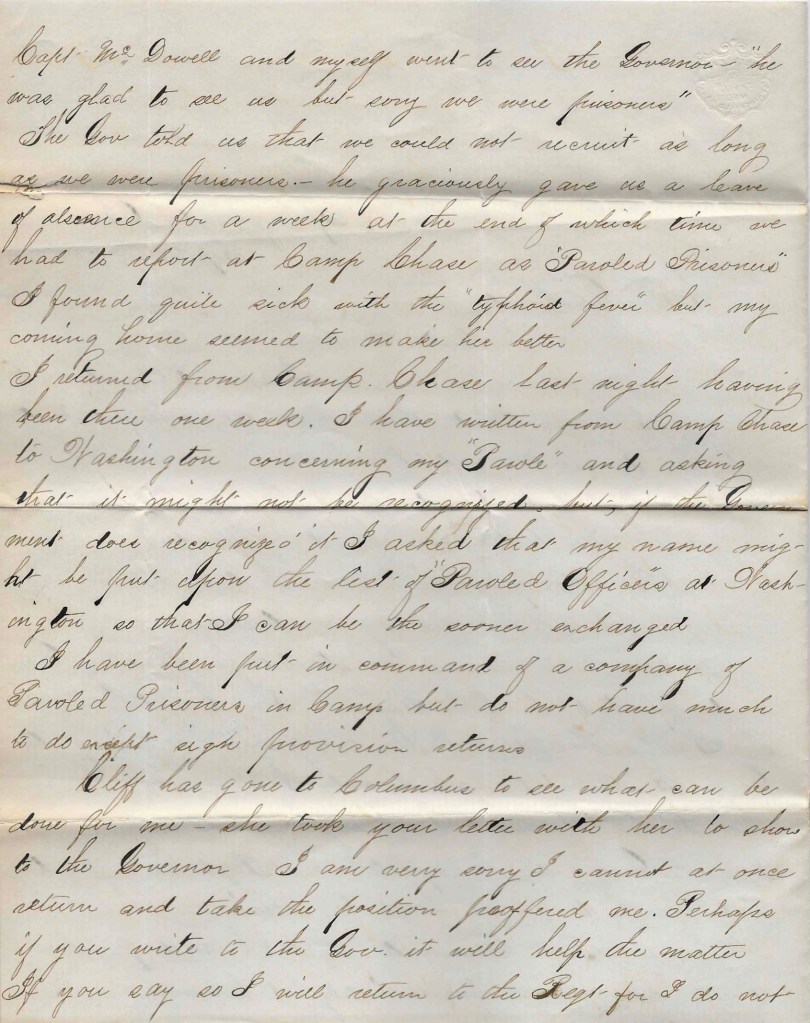 Capt Mc Dowell and myself went to see the Governor - "he
was glad to see us but sorry we were prisoners"
The Gov told us that we could not recruit as long
as we were prisoners. - he graciously gave us a leave
of absence for a week at the end of which time we
had to report at Camp Chase as "Paroled Prisoners"
I found quite sick with the "typhoid fever" but my
coming home seemed to make her better
I returned from Camp. Chase last night having
been there one week. I have written from Camp Chase
to Washington concerning my "Parole" and asking
that it might not be recognized, but, if the Govern
ment does recognize it I asked that my name mig-
ht be put upon the list of "Paroled Officers" at Wash-
ington so that I can be the sooner exchanged
I have been put in command of a company of
Paroled Prisoners in Camp but do not have much
to do except sign provision returns
Cliff has gone to Columbus to see what can be
done for me - she took your letter with her to show
to the Governor I am very sorry I cannot at once
return and take the position proffered me. Perhaps
if you write to the Gov. it will help the matter
If you say so I will return to the Regt for I do not